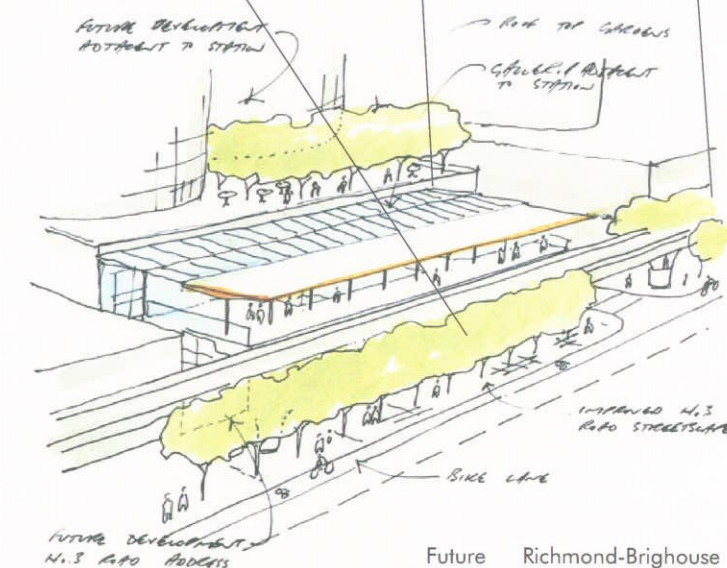 FUTURE DEVELOPMENT
ADJACENT TO STATION
ROOF TOP GARDENS
GALLERIA ADJACENT
TO STATION
IMPROVED No.3
ROAD STREETSCAPE
BIKE LANE
FUTURE DEVELOPMENT
No.3 ROAD ADDRESS
Future Richmond-Brighouse